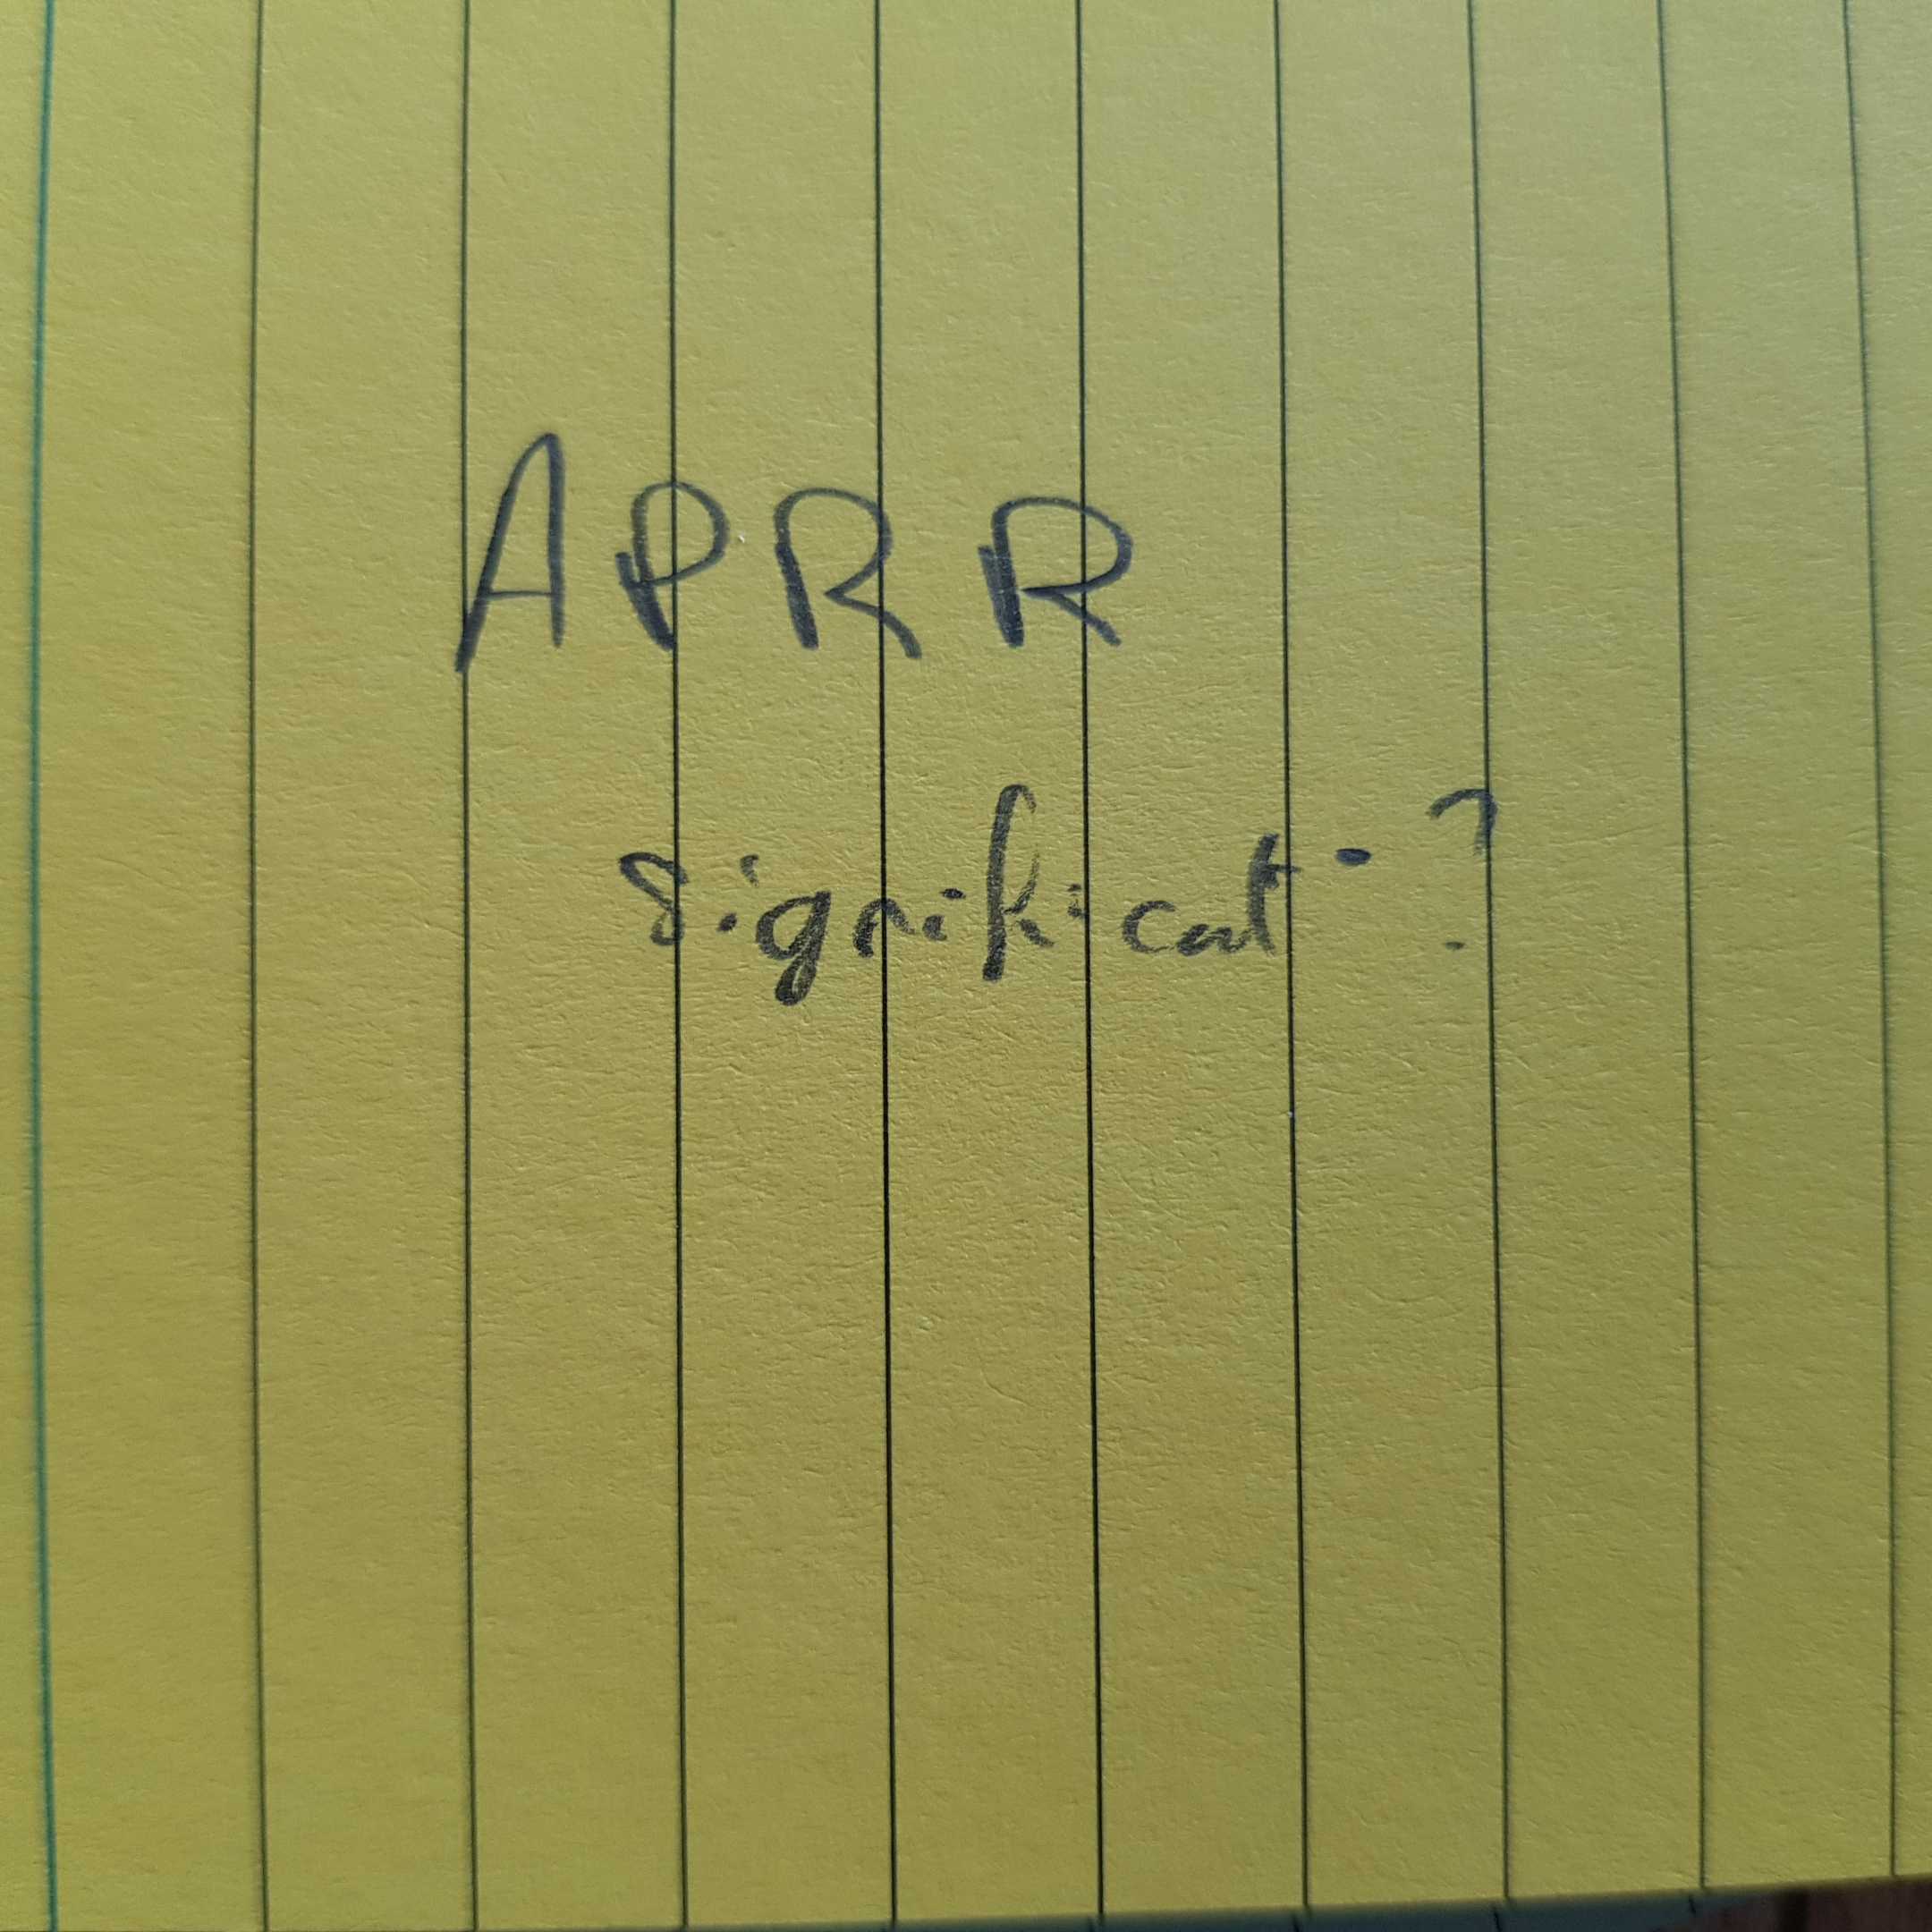 APRR
significat-?